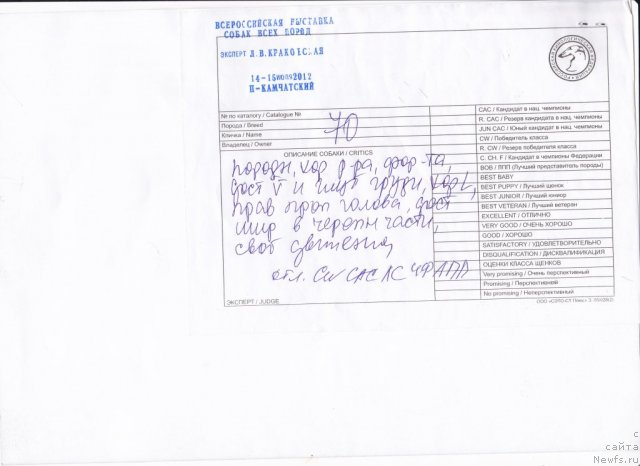 ВСЕРОССИЙСКАЯ ВЫСТАВКА
СОБАК ВСЕХ ПОРОД
ЭКСПЕРТ Л.В.КРАКОВСКАЯ
14-15 июля 2012
П-КАМЧАТСКИЙ
№ по каталогу / Catalogue №
Порода / Breed
Кличка / Name
Владелец / Owner
70
ОПИСАНИЕ СОБАКИ / CRITICS
породн, хор р-ра, фор-та,
дост V и шир груди, хор L,
прав проп голова, дост
шир в черепн части,
своб движения,
отл. CW CAC ЛС ЧФ ЛПП
ЭКСПЕРТ / JUDGE
CAC / Кандидат в нац. чемпионы
R. CAC / Резерв кандидата в нац. чемпионы
JUN CAC / Юный кандидат в нац. чемпионы
CW / Победитель класса
R. CW / Резерв победителя класса
C. CH. F / Кандидат в чемпионы Федерации
BOB / ЛПП (Лучший представитель породы)
BEST BABY
BEST PUPPY / Лучший щенок
BEST JUNIOR / Лучший юниор
BEST VETERAN / Лучший ветеран
EXCELLENT / ОТЛИЧНО
VERY GOOD / ОЧЕНЬ ХОРОШО
GOOD / ХОРОШО
SATISFACTORY / УДОВЛЕТВОРИТЕЛЬНО
DISQUALIFICATION / ДИСКВАЛИФИКАЦИЯ
ОЦЕНКИ КЛАССА ЩЕНКОВ
Very promising / Очень перспективный
Promising / Перспективный
No promising / Неперспективный
с
сайта
Newfs.ru